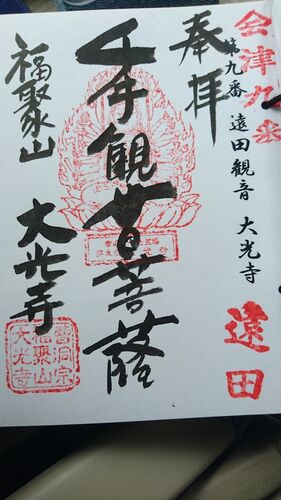 会津九番
第九番 遠田観音 大光寺
遠田
奉拝
千手観音菩薩
福聚山
大光寺
曹洞宗
福聚山
大光寺